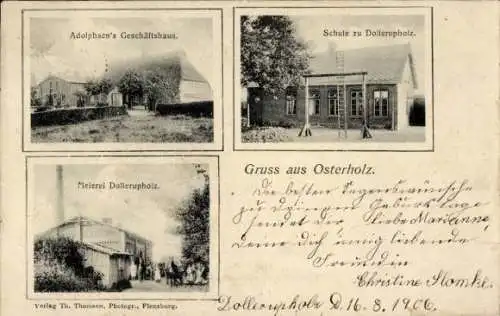 Adolphsen's Geschäftshaus.
Schule zu Dollerupholz.
Meierei Dollerupholz.
Verlag Th. Thomsen, Photogr., Flensburg.
Gruss aus Osterholz.
Die besten Segenswünsche
zu Deinem Geburtstage
sendet dir liebe Marianne,
Deine dich innig liebende
Freundin
Christine
Dollerupholz D. 16.8.1906.